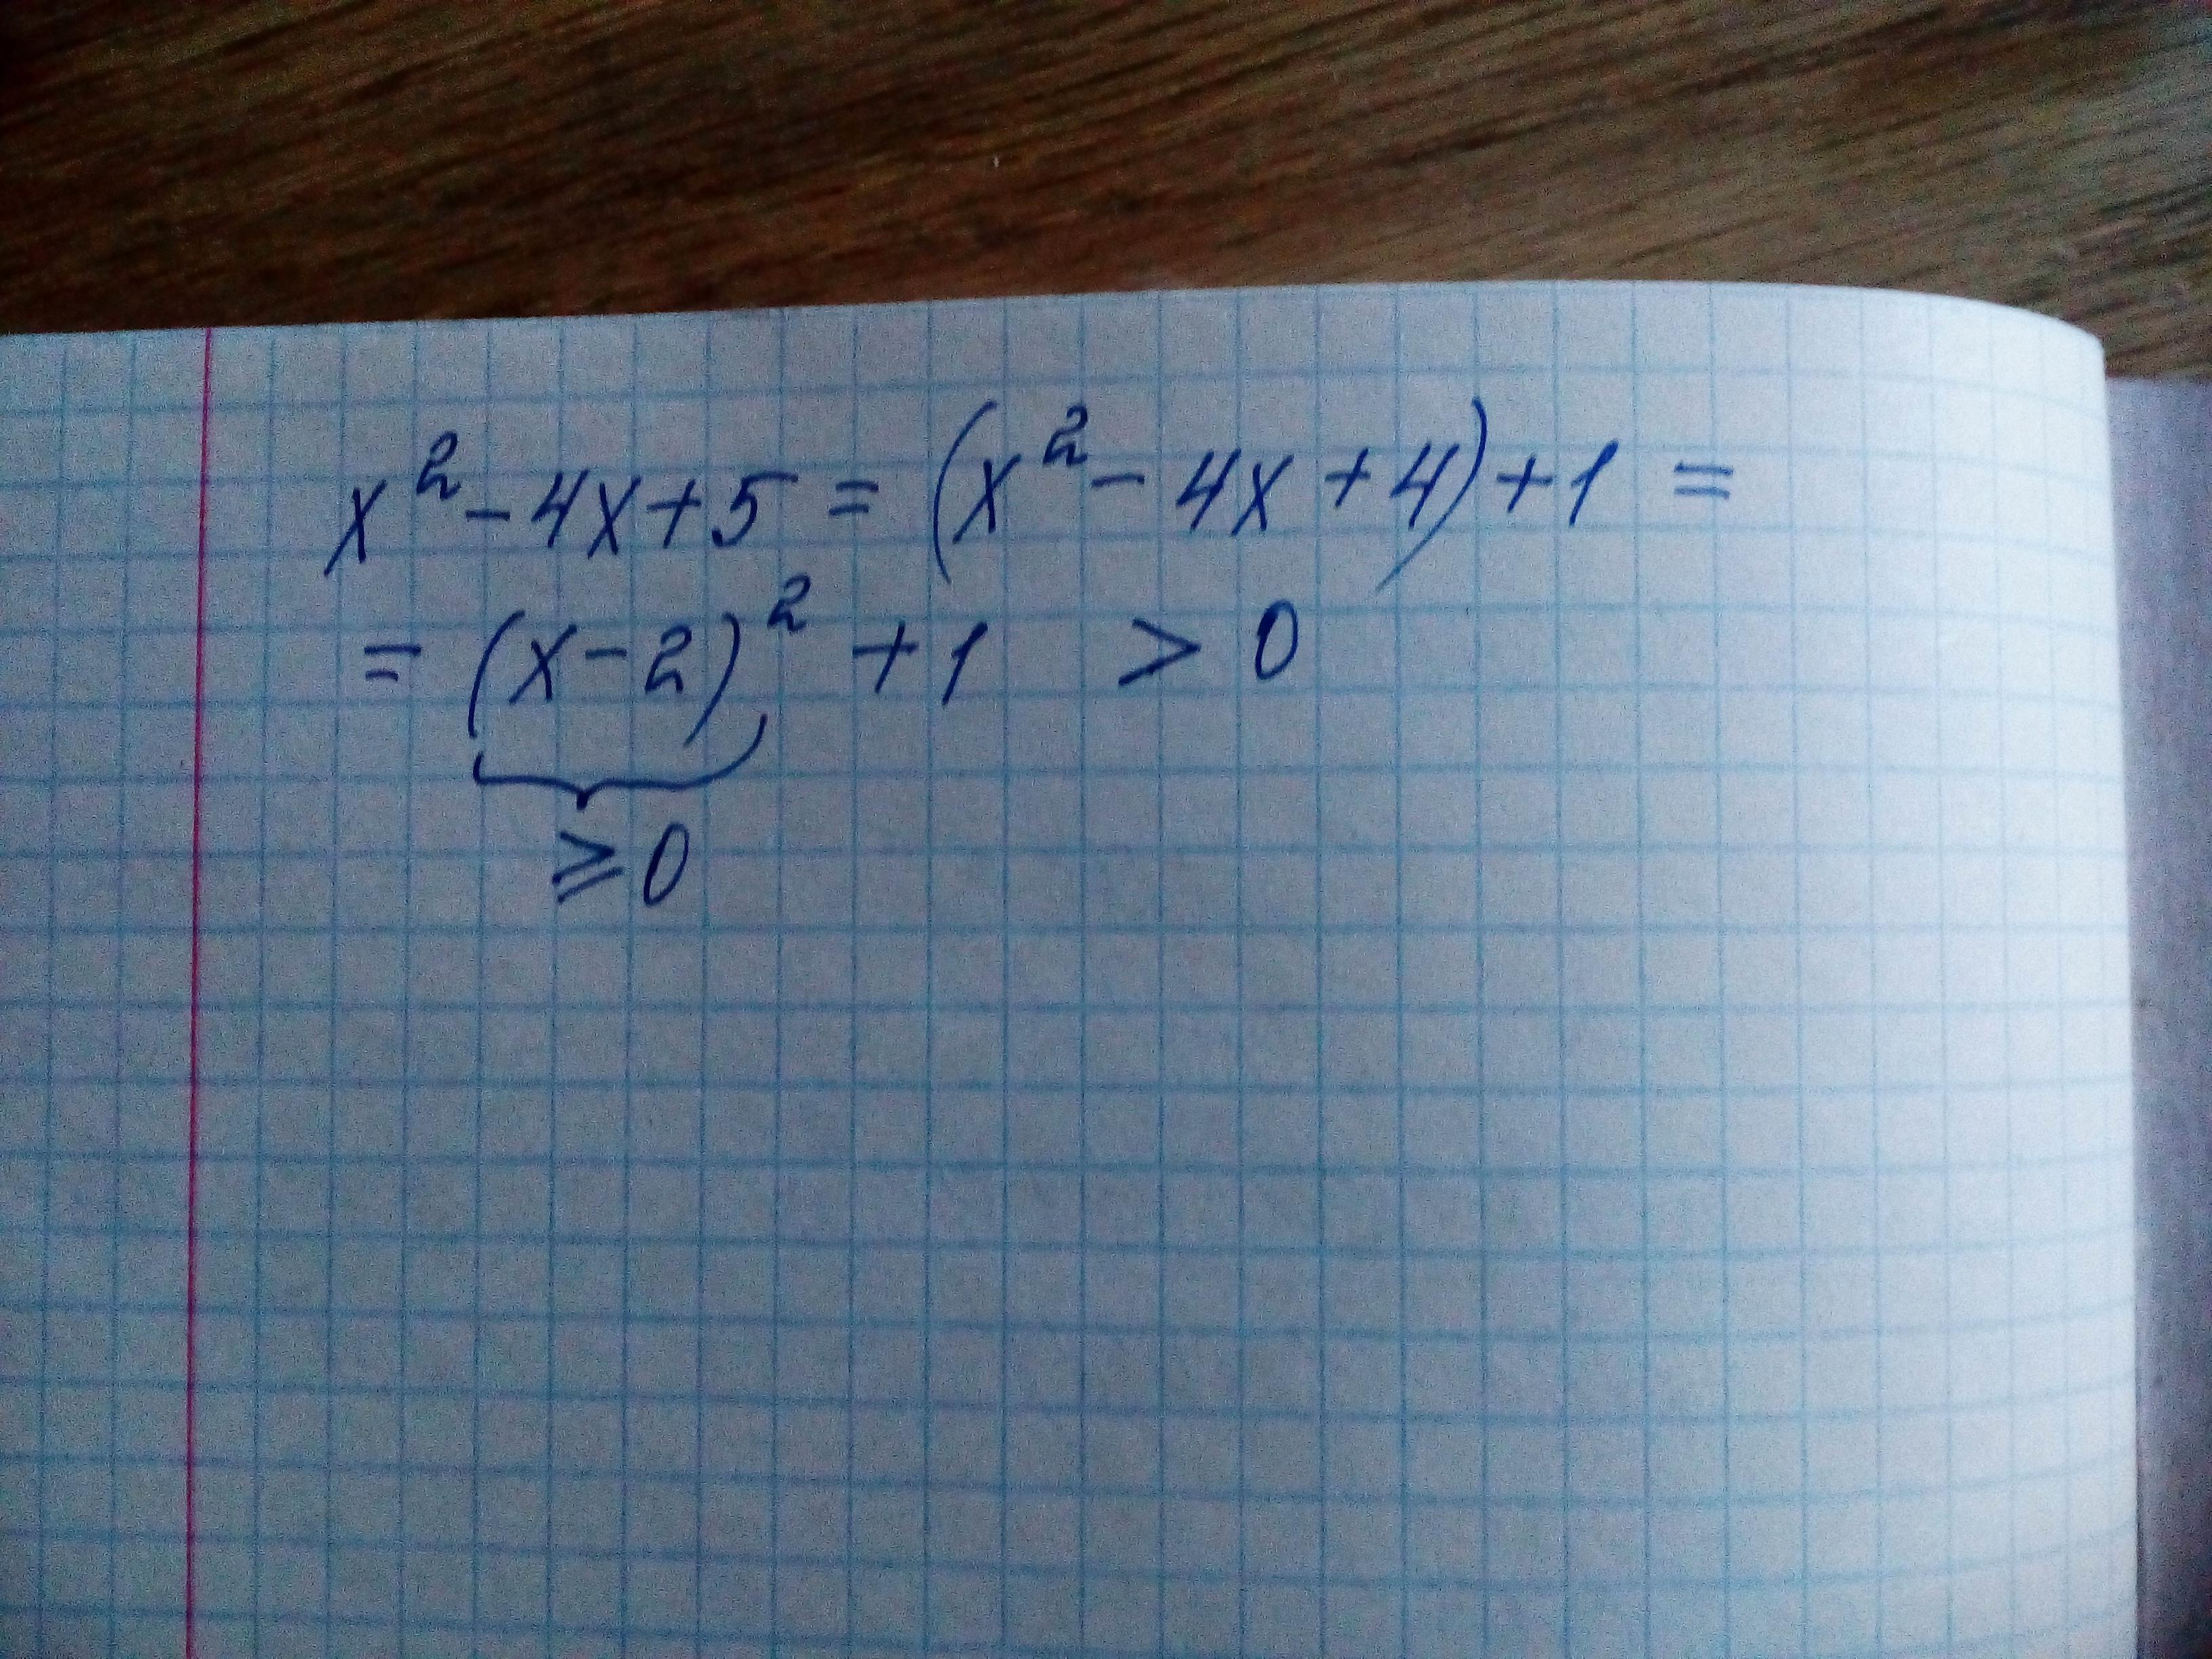 x² - 4x + 5 = (x² - 4x + 4) + 1 =
= (x - 2)² + 1 > 0
≥ 0